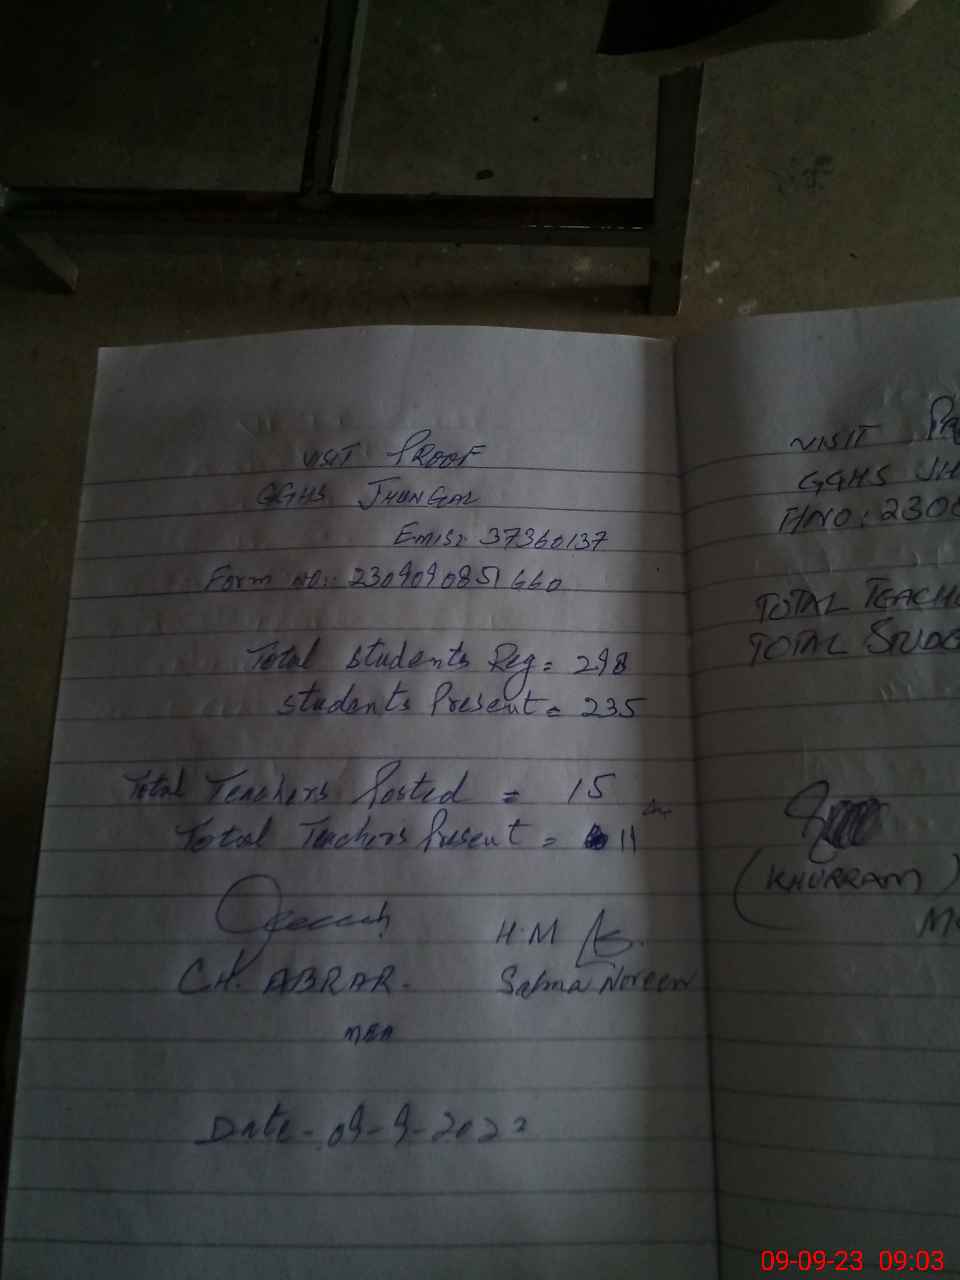 VISIT PROOF
GGHS JHUNGAL
Emis: 37360137
Form no: 2309090851660
Total Students Reg = 298
Students Present = 235
Total Teachers Posted = 15
Total Teachers Present = 11
CH. ABRAR.
MEA
H.M
Salma Noreen
Date - 09-9-2023
VISIT
GGHS
FNO: 230
TOTAL TEACHE
TOTAL STUDE
(KHURRAM)
09-09-23 09:03